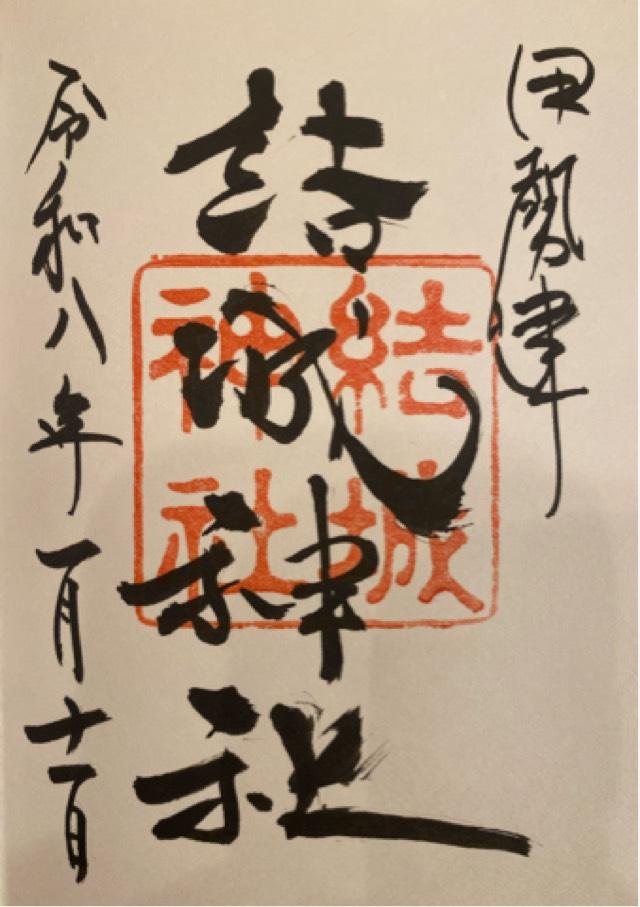 伊勢津
結城神社
結城
神社
令和八年一月十一日